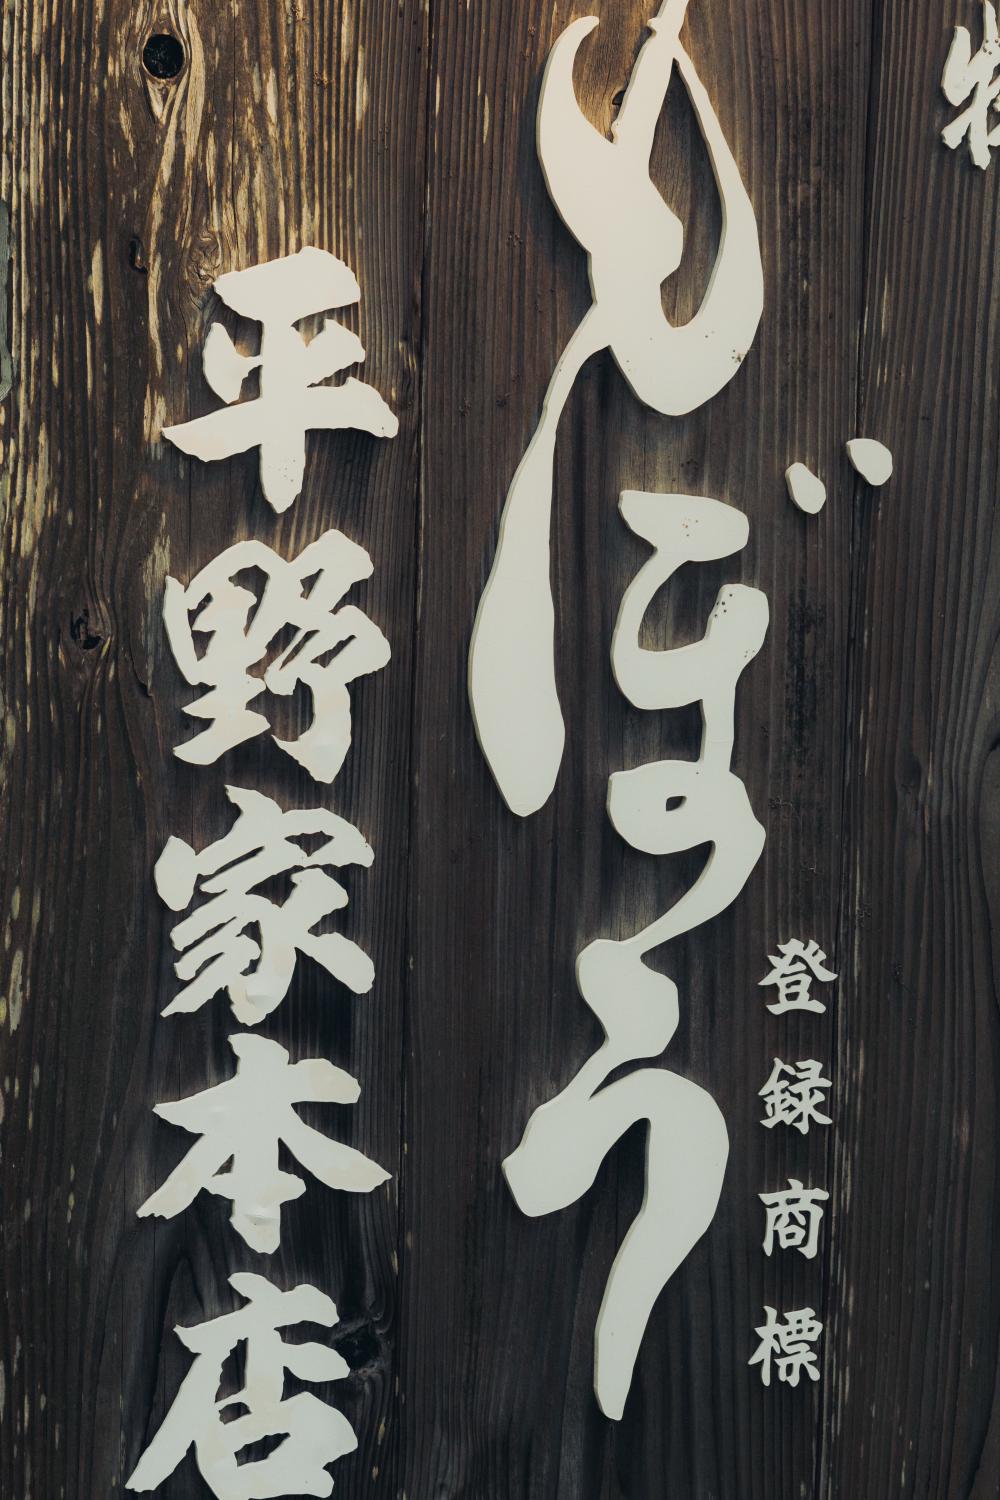 登録商標
もぼう
平野家本店